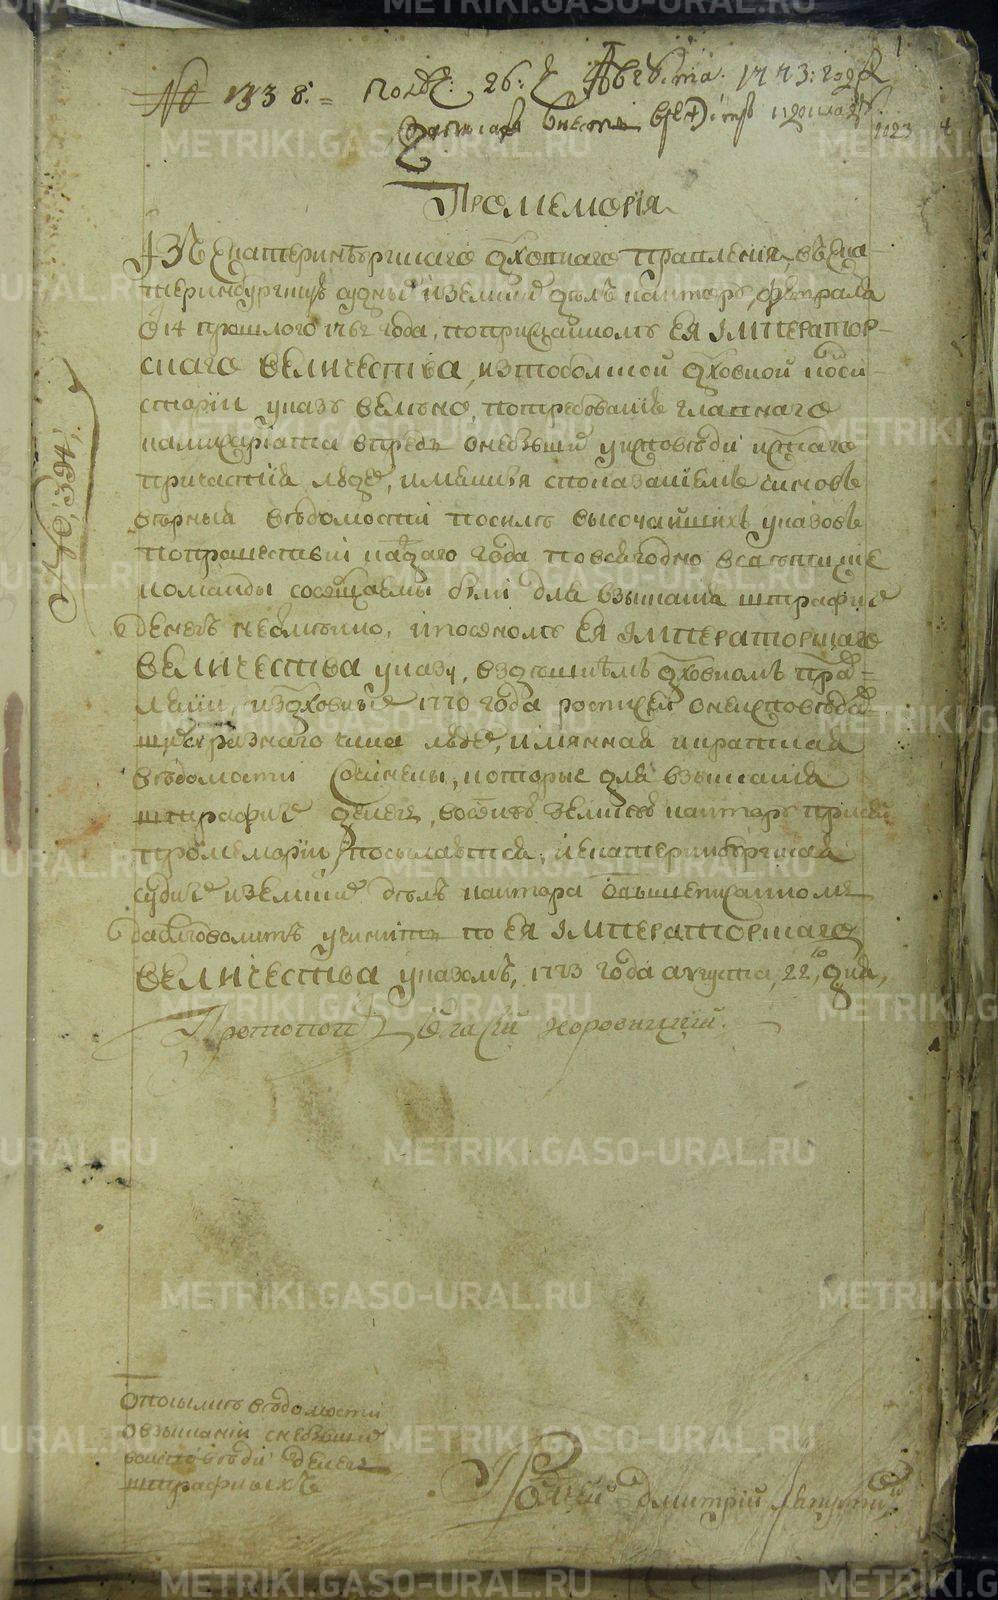 1
№ 1338: = Подъ: 26: Августа: 1773: году
Записавъ внесть в реэстръ
Промеморїя
Изъ Екатеринбургскаго духовнаго правленїя, въ Ека-
теринбургскую судныхъ и земскихъ делъ кантору, февраля
14 прошлого 1762 года, по присланномъ ЕЯ ІМПЕРАТОР-
скаго ВЕЛИЧЕСТВА, из тоболской духовной конси-
сторїи указу велѣно, по требованїю главнаго
камисарїата впредь о небывшихъ у исповѣди и святаго
причастїя людехъ, имянныя с показанїемъ чиновъ
вѣрныя вѣдомости по силѣ высочайшихъ указовъ
по прошествїи каждаго года повсягодно в свѣтскїе
команды сообщаемы были для взысканїя штрафныхъ
денегъ неотмѣнно, и по оному ЕЯ ІМПЕРАТОРскаго
ВЕЛИЧЕСТВА указу, в здѣшнемъ духовномъ прав-
ленїи, из духовныхъ 1770 года росписей о неисповѣдав-
шихся разнаго чина людехъ, имянная и краткая
вѣдомости сочинены, которые для взысканїя
штрафныхъ денегъ, во оную земскую кантору при сей
промеморїи посылаются, и екатеринбургская
судныхъ и земскихъ делъ кантора о вышеписанномъ
да благоволитъ учинить по ЕЯ ІМПЕРАТОРскаго
ВЕЛИЧЕСТВА указомъ, 1773 года августа, 22го дня,
Протопопъ Коровницкїй.
№ 394,
О посылкѣ вѣдомости
о взысканїи с небывшихъ
во исповѣди денегъ
штрафныхъ
Дмитрїй
METRIKI.GASO-URAL.RU